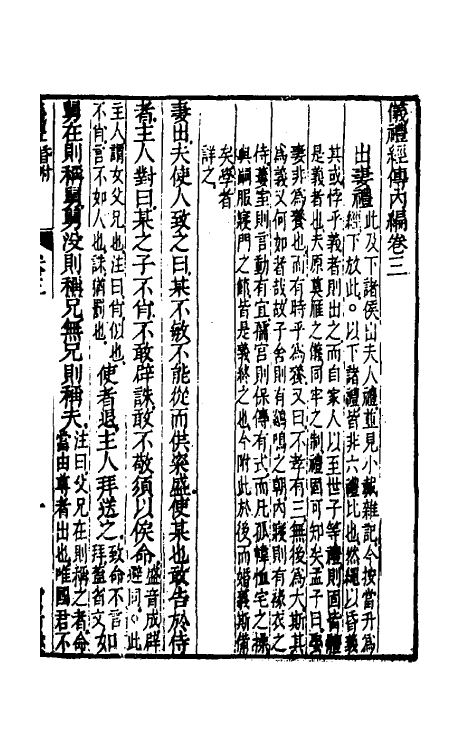 儀禮經傳內編卷三
出妻禮
此及下諸侯出夫人禮並見小戴雜記今按當升為
經下放此○以下諸禮皆非六禮比也然繩以昏義
其或悖乎義者則出之而自家人以至世子等禮則固皆體
是義者也夫原奠雁之儀同牢之制禮固可知矣孟子曰娶
妻非為養也而有時乎為養又曰不孝有三無後為大斯其
為義又何如者哉故子舍則有鷄鳴之朝內寢則有褖衣之
侍
則言動有宜
宮則保傅有式而凡孤幃恤宅之操
與嗣服寢門之節皆是義終之也今附此於後而婚義斯備
矣學者
詳之
妻出夫使人致之曰某不敏不能從而供粢盛使某也敢告於侍
者主人對曰某之子不肖不敢辟誅敢不敬須以俟命
盛音成辟
避同○此
主人謂女父兄也注曰肖似也
不肖言不如人也誅猶罰也
使者退主人拜送之
致命不言如
拜蓋省文女
舅在則稱舅舅沒則稱兄無兄則稱夫
注曰父兄在則稱之者命
當由尊者出也唯國君不